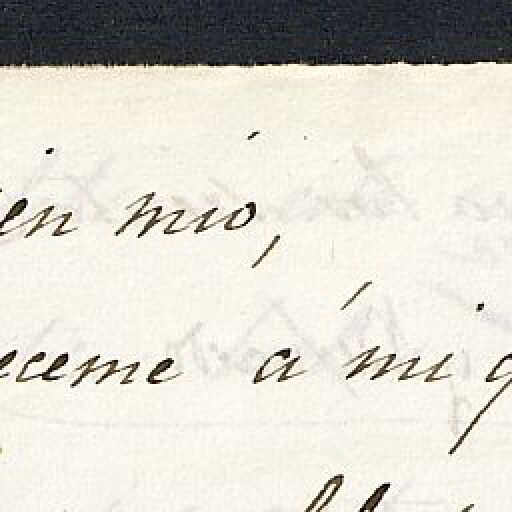 ien mio,
eceme á mi q